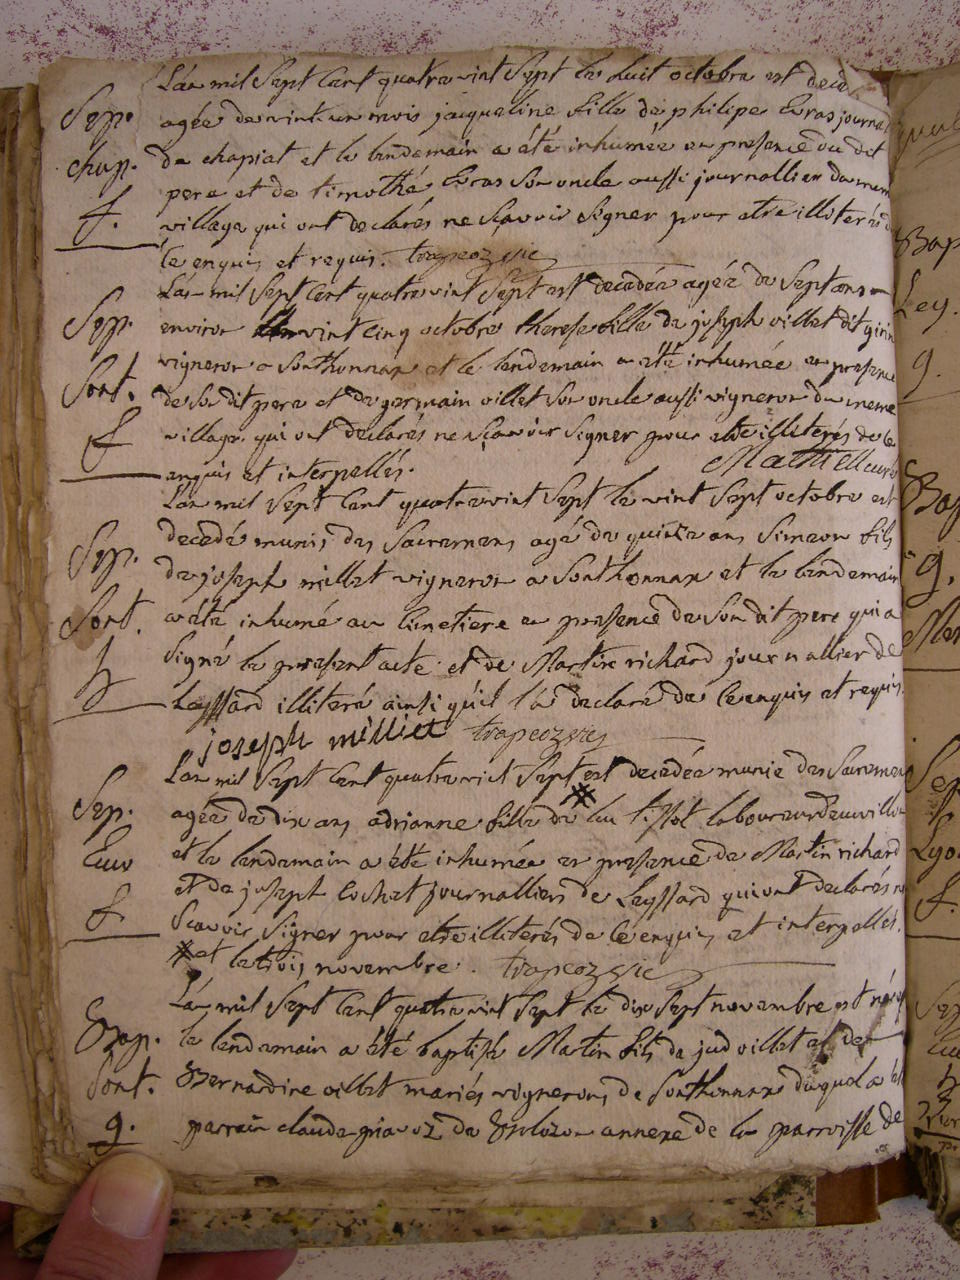 L'an mil Sept Cent quatre vint Sept le huit octobre est décé
Sep. agée de vint un mois jacqueline fille de philipe Gras journa
chap. de chapiat et le lendemain a été inhumée en presence du dit
f. pere et de timothé Gras Son oncle aussi journallier du mem
village qui ont declarés ne Sçavoir Signer pour etre illiterés d
ce enquis et requis. trapeoz vic
L'an mil Sept Cent quatre vint Sept est decedée agée de Sept ans
Sep. environ vint cinq octobre therese fille de joseph villet dit
Sont. vigneron a Sonthonnax et le lendemain a été inhumée en presence
de Son dit pere et de germain villet Son oncle aussi vigneron du meme
f village qui ont declarés ne Sçavoir Signer pour etre illiterés de ce
enquis et interpellés.
L'an mil Sept Cent quatre vint Sept le vint Sept octobre est
Sep. decedé munis des Sacremens agé de quinze ans Simeon fils
de joseph millet vigneron a Sonthonnax et le lendemain
Sont. a été inhumé au Cimetiere en presence de Son dit pere qui a
Signé le present acte et de Martin richard journallier de
Leyssard illiteré ainsi qu'il l'a declaré de Ce enquis et requis.
joseph milliet trapeoz vic
L'an mil Sept Cent quatre vint Sept # est decedée munie des Sacremens
Sep. agée de dix ans adrianne fille de tissot laboureur
et le lendemain a été inhumée en presence de Martin richard
et de joseph Cochet journalliers de Leyssard qui ont declarés n
f. Scavoir Signer pour etre illiterés de Ce enquis et interpellés.
# et le trois novembre. trapeoz vic
L'an mil Sept Cent quatre vint Sept le dix Sept novembre est né
Bap. le lendemain a été baptisé Martin fils de jud villet et de
Sont. Bernardine villet mariés vignerons de Sonthonnax duquel a été
g. parrain claude de annexe de la parroisse de